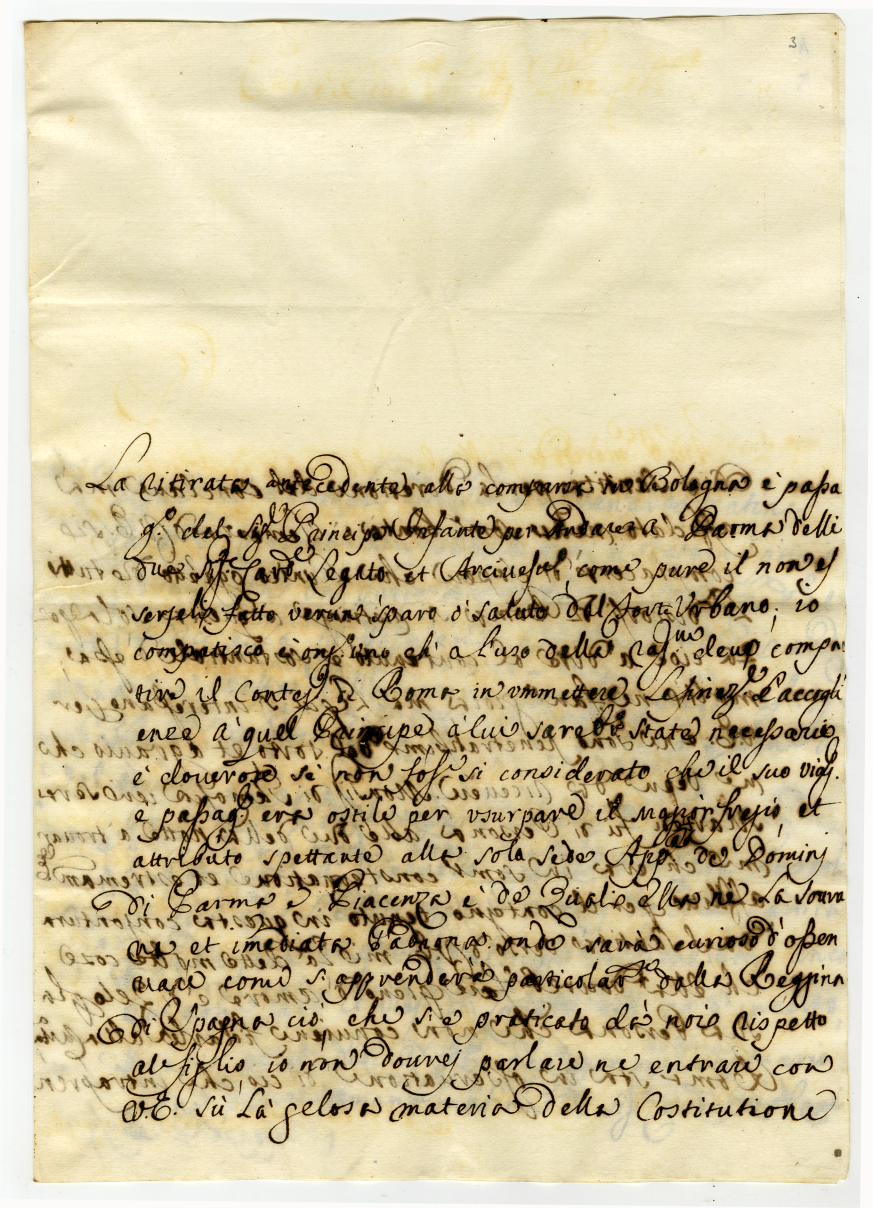 3
La ritirata antecedente alla comparsa in Bologna e passa
g.º del Sig.r Principe Infante per andare a' Parma delli
due SS.ri Card.li Legato et Arcivesc.º, come pure il non es
sersegli fatto verun sparo ò saluto dal Forte Urbano, io
compatisco ch' a l'uso della deve compa
tire il di Roma in ommettere Le finezze e l'accogli
enze a' quel Principe a' lui sarebb.º state necessarie,
e doverose se non foss.º si considerato che il suo viag.
e passag.º era ostile per usurpare il maggior fregio, et
attributo spettante alla sola sede App.ca de Dominj
di Parma e Piacenza e' de Quali ella ne La sovra
na et imediata Padrona, onde sarà curioso d'osser
vare come s'apprenderà particolar.te dalla Reggina
di Spagna ciò, che s'è praticato da noi rispetto
al figlio, io non dovrej parlare ne entrare con
V.E. sù La' gelosa materia della Costitutione